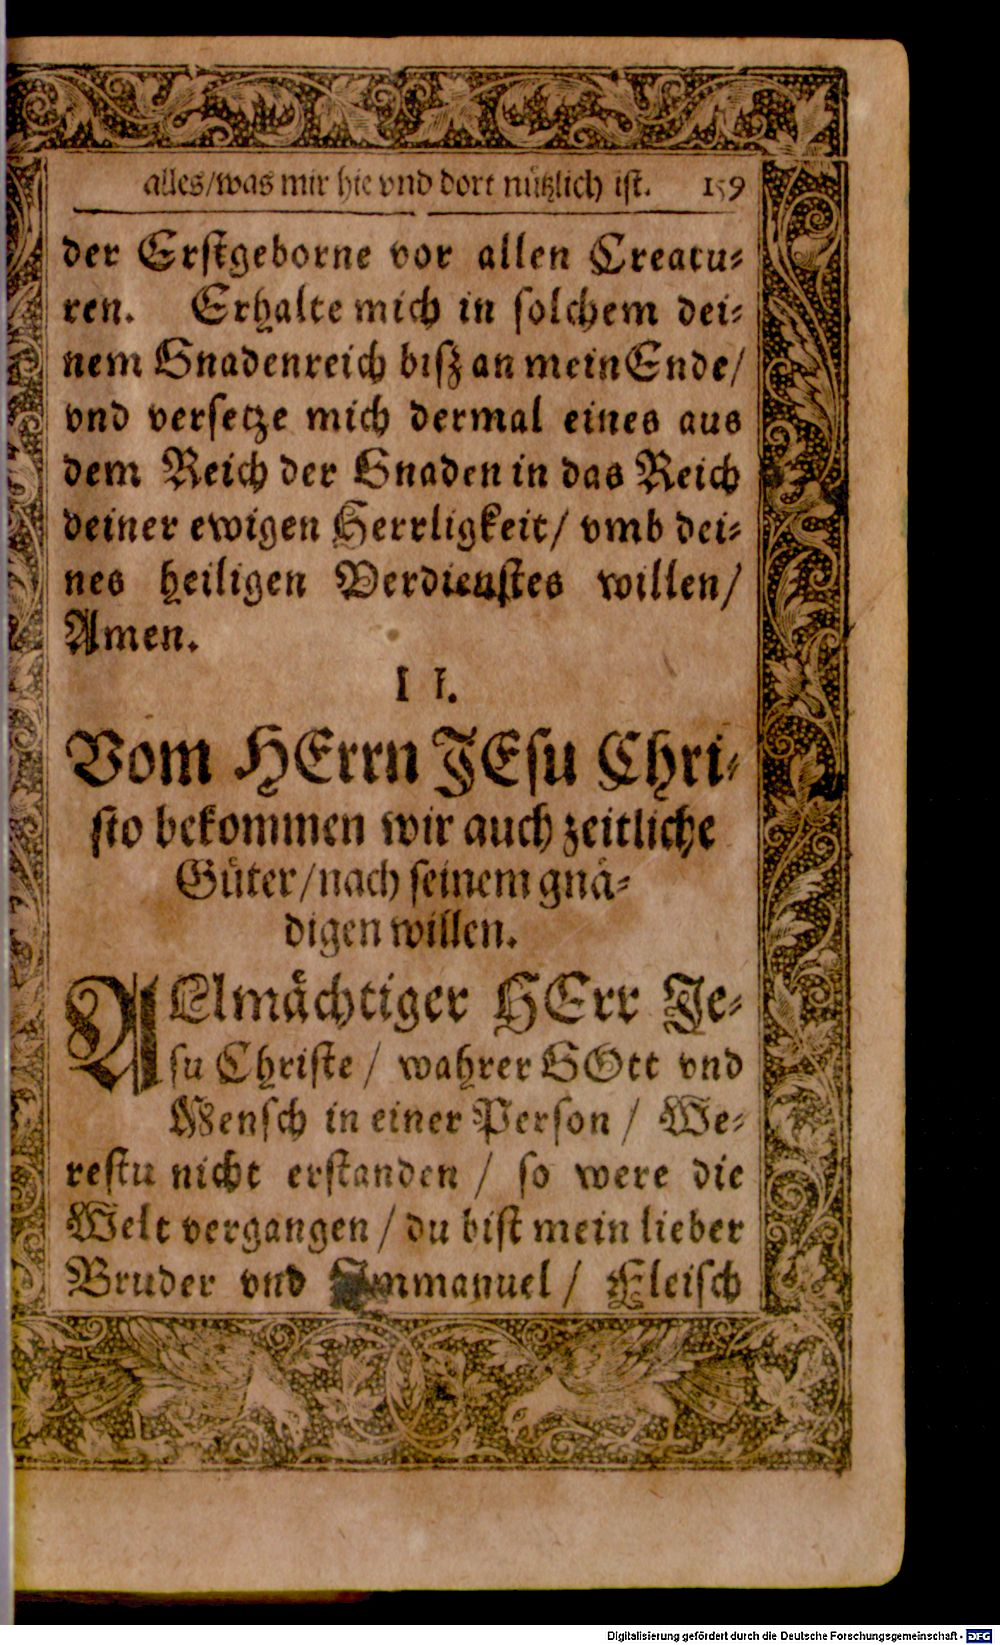 alles/was mir hie vnd dort nuͤtzlich ist. 159
der Erstgeborne vor allen Creatu⸗
ren. Erhalte mich in solchem dei⸗
nem Gnadenreich biß an mein Ende/
vnd versetze mich dermal eines aus
dem Reich der Gnaden in das Reich
deiner ewigen Herrligkeit/ vmb dei⸗
nes heiligen Verdienstes willen/
Amen.
II.
Vom HErrn JEsu Chri⸗
sto bekommen wir auch zeitliche
Guͤter/nach seinem gnaͤ⸗
digen willen.
ALlmaͤchtiger HErr Je⸗
su Christe / wahrer GOtt vnd
Mensch in einer Person / We⸗
restu nicht erstanden / so were die
Welt vergangen / du bist mein lieber
Bruder vnd Immanuel / Fleisch
Digitalisierung gefördert durch die Deutsche Forschungsgemeinschaft - DFG